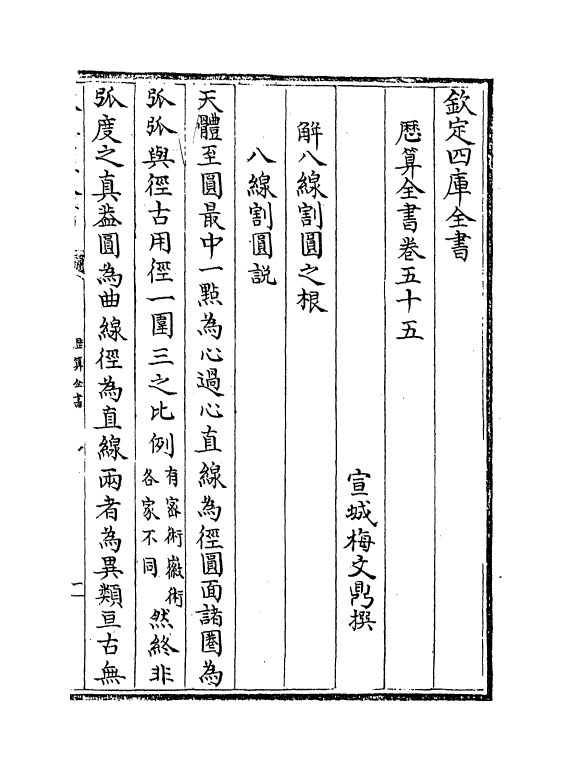 欽定四庫全書
厯算全書卷五十五
宣城梅文鼎撰
解八線割圓之根
八線割圓説
天體至圓最中一㸃為心過心直線為徑圓面諸圏為
弧弧與徑古用徑一圍三之比例有宻術㣲術各家不同然終非
弧度之真葢圓為曲線徑為直線兩者為異類亘古無
厯算全書